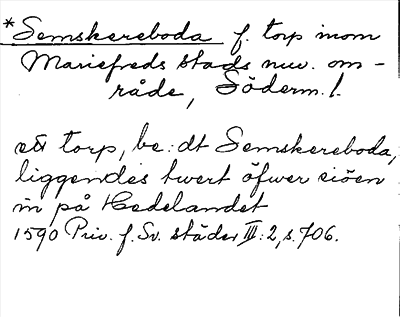 *Semskereboda f. torp inom
Mariefreds stads nuv. om-
råde, Söderm. l.
ett torp, be:dt Semskereboda,
liggendes twert öfwer siöen
in på Hedelandet
1590 Priv. f. Sv. städer III:2, s. 706.